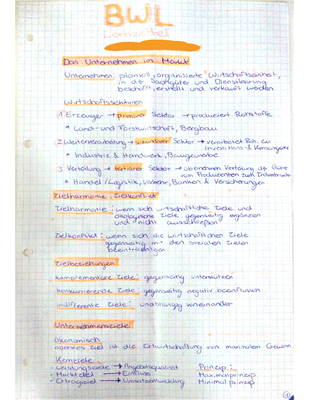 BWL
Lernzettel
Das Unternehmen im Markt
Unternehmen: planvoll, organisierte Wirtschaftseinheit,
in der Sachgüter und Dienstleistung
beschafft, erstellt und verkauft werden
Wirtschaftssektoren
1. Erzeuger → primärer Sektor → produziert Rohstoffe
* Land- und Forstwirtschaft, Bergbau
2. Weiterverarbeitung → sekundärer Sektor → verarbeitet Roh. zu
Investitions & Konsumgüter
* Industrie & Handwerk, Baugewerbe
3. Verteilung → tertiärer Sektor → übernehmen Verteilung der Güter
von Produzenten zum
* Handel / Logistik, Verkehr, Banken & Versicherungen
Zielharmonie Zielkonflikt
Zielharmonie: wenn sich wirtschaftliche Ziele und
ökologische Ziele gegenseitig ergänzen
und nicht ausschließen
Zielkonflikt: wenn sich die wirtschaftlichen Ziele
gegenseitig mit den sozialen Zielen
beeinträchtigen
Zielbeziehungen
komplementäre Ziele: gegenseitig unterstützen
konkurrierende Ziele: gegenseitig negativ beeinflussen
indifferente Ziele: unabhängig voneinander
Unternehmensziele
ökonomisch
oberstes Ziel ist die Erwirtschaftung von maximalem Gewinn
Kernziele: Prinzip:
- Leistungsziele → Angebotsqualität Maximalprinzip
- Marktziel → Einfluss Minimalprinzip
- Ertragsziel → Umsatzentwicklung